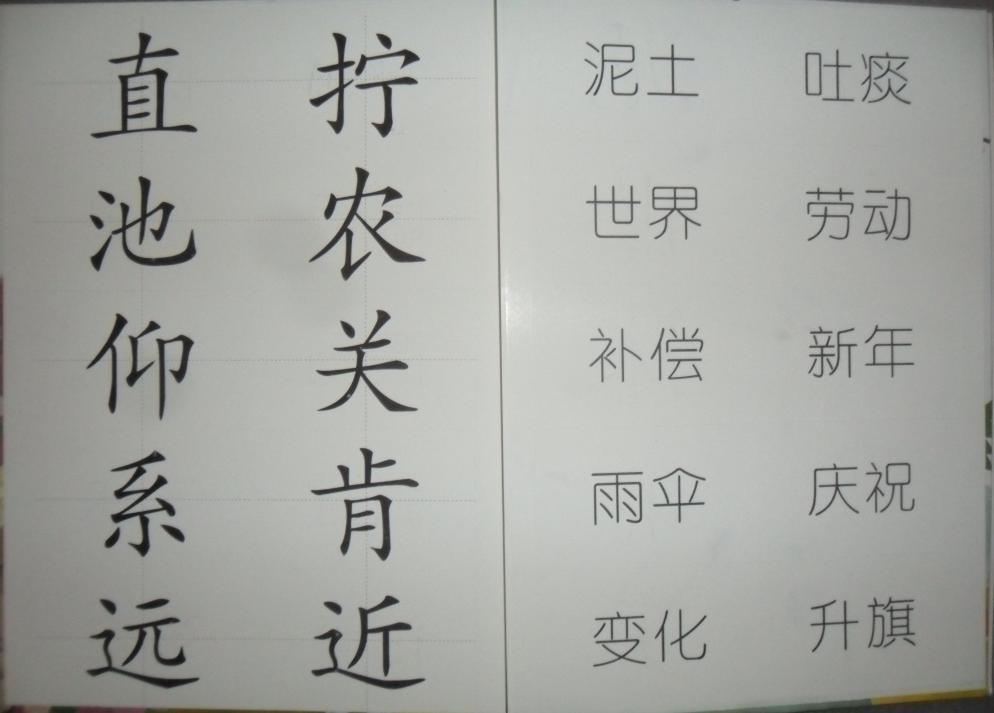 直 拧
池 农
仰 关
系 肯
远 近
泥土 吐痰
世界 劳动
补偿 新年
雨伞 庆祝
变化 升旗